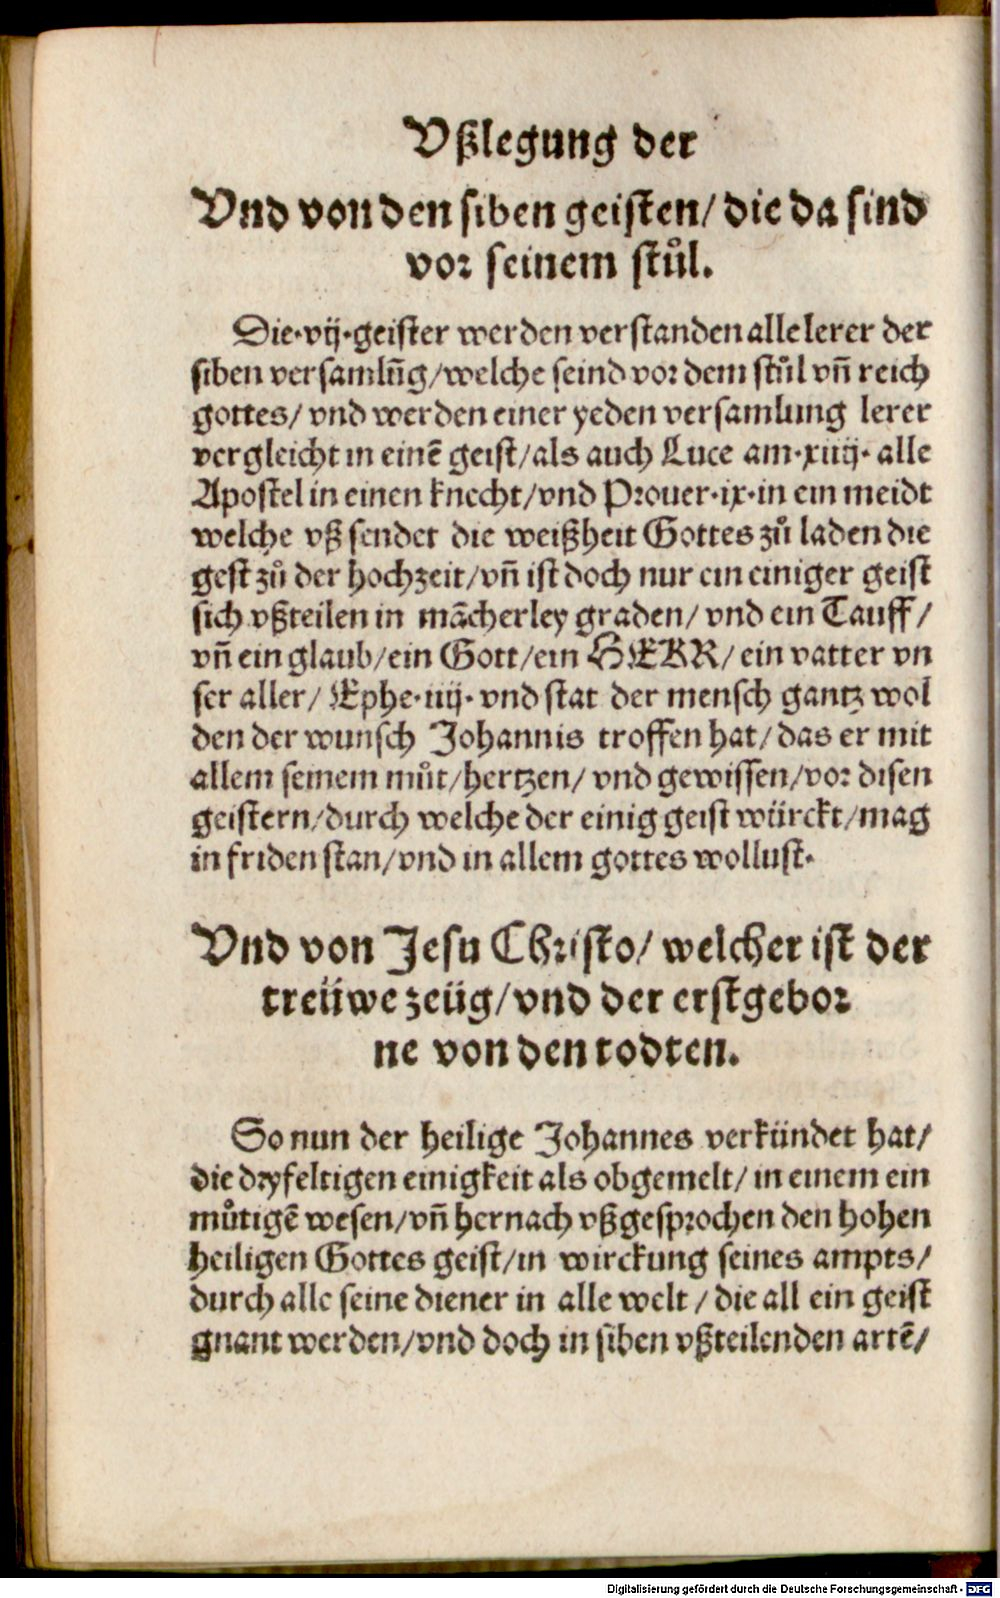 Vßlegung der
Vnd von den siben geisten/ die da sind
vor seinem stůl.
Die·vij·geister werden verstanden alle lerer der
siben versamlūg/welche seind vor dem stůl vñ reich
gottes/ vnd werden einer yeden versamlung lerer
vergleicht in einē geist/als auch Luce am·xiiij· alle
Apostel in einen knecht/vnd Prouer·ix·in ein meidt
welche vß sendet die weißheit Gottes zů laden die
gest zů der hochzeit/vñ ist doch nur ein einiger geist
sich vßteilen in mācherley graden/ vnd ein Tauff/
vñ ein glaub/ein Gott/ein HERR/ ein vatter vn
ser aller/ Ephe·iiij· vnd stat der mensch gantz wol
den der wunsch Johannis troffen hat/das er mit
allem seinem můt/hertzen/ vnd gewissen/vor disen
geistern/durch welche der einig geist würckt/mag
in friden stan/vnd in allem gottes wollust·
Vnd von Jesu Christo/ welcher ist der
treüwe zeüg/vnd der erstgebor
ne von den todten.
So nun der heilige Johannes verkündet hat/
die dryfeltigen einigkeit als obgemelt/ in einem ein
můtigē wesen/vñ hernach vßgesprochen den hohen
heiligen Gottes geist/in wirckung seines ampts/
durch alle seine diener in alle welt / die all ein geist
gnant werden/vnd doch in siben vßteilenden artē/
Digitalisierung gefördert durch die Deutsche Forschungsgemeinschaft - DFG